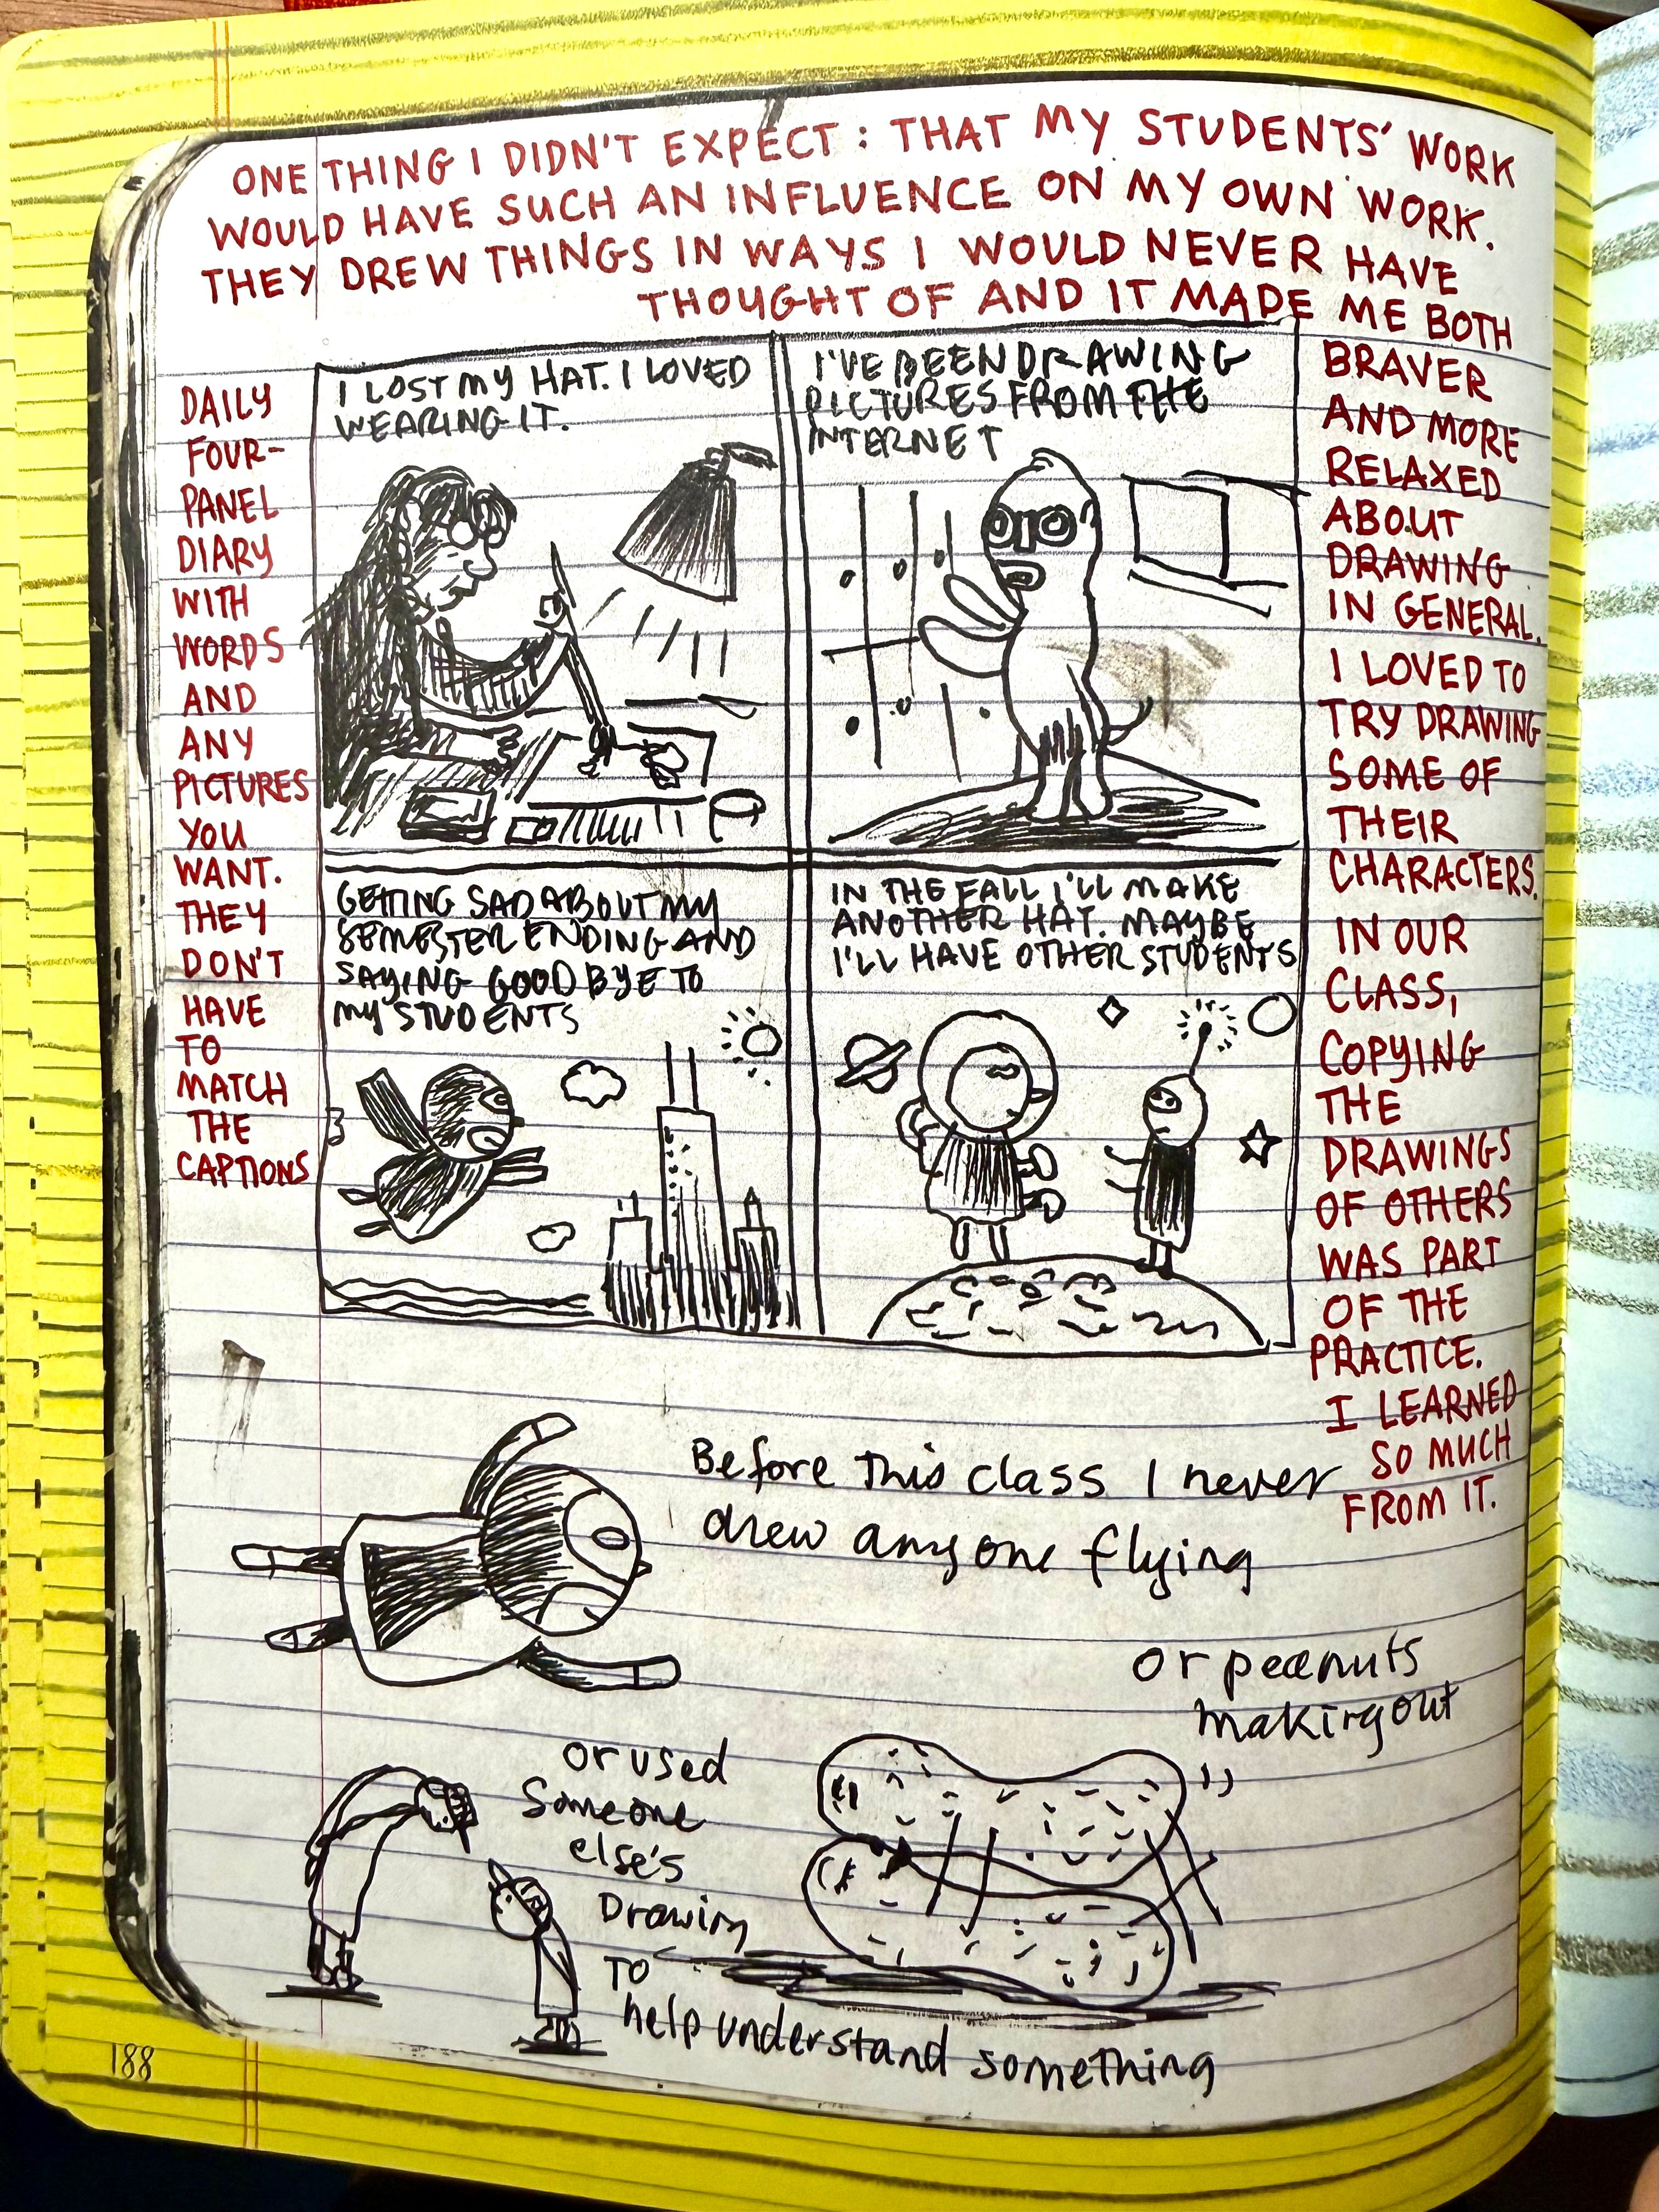 ONE THING I DIDN'T EXPECT: THAT MY STUDENTS' WORK
WOULD HAVE SUCH AN INFLUENCE ON MY OWN WORK.
THEY DREW THINGS IN WAYS I WOULD NEVER HAVE
THOUGHT OF AND IT MADE ME BOTH
BRAVER
AND MORE
RELAXED
ABOUT
DRAWING
IN GENERAL.
I LOVED TO
TRY DRAWING
SOME OF
THEIR
CHARACTERS.
IN OUR
CLASS,
COPYING
THE
DRAWINGS
OF OTHERS
WAS PART
OF THE
PRACTICE.
I LEARNED
SO MUCH
FROM IT.
DAILY
FOUR-
PANEL
DIARY
WITH
WORDS
AND
ANY
PICTURES
YOU
WANT.
THEY
DON'T
HAVE
TO
MATCH
THE
CAPTIONS
I LOST MY HAT. I LOVED
WEARING IT.
I'VE BEEN DRAWING
PICTURES FROM THE
INTERNET
GETTING SAD ABOUT MY
SEMESTER ENDING AND
SAYING GOODBYE TO
MY STUDENTS
IN THE FALL I'LL MAKE
ANOTHER HAT. MAYBE
I'LL HAVE OTHER STUDENTS
Before this class I never
drew anyone flying
or peanuts
making out
or used
Someone
else's
Drawing
TO
help understand something
188